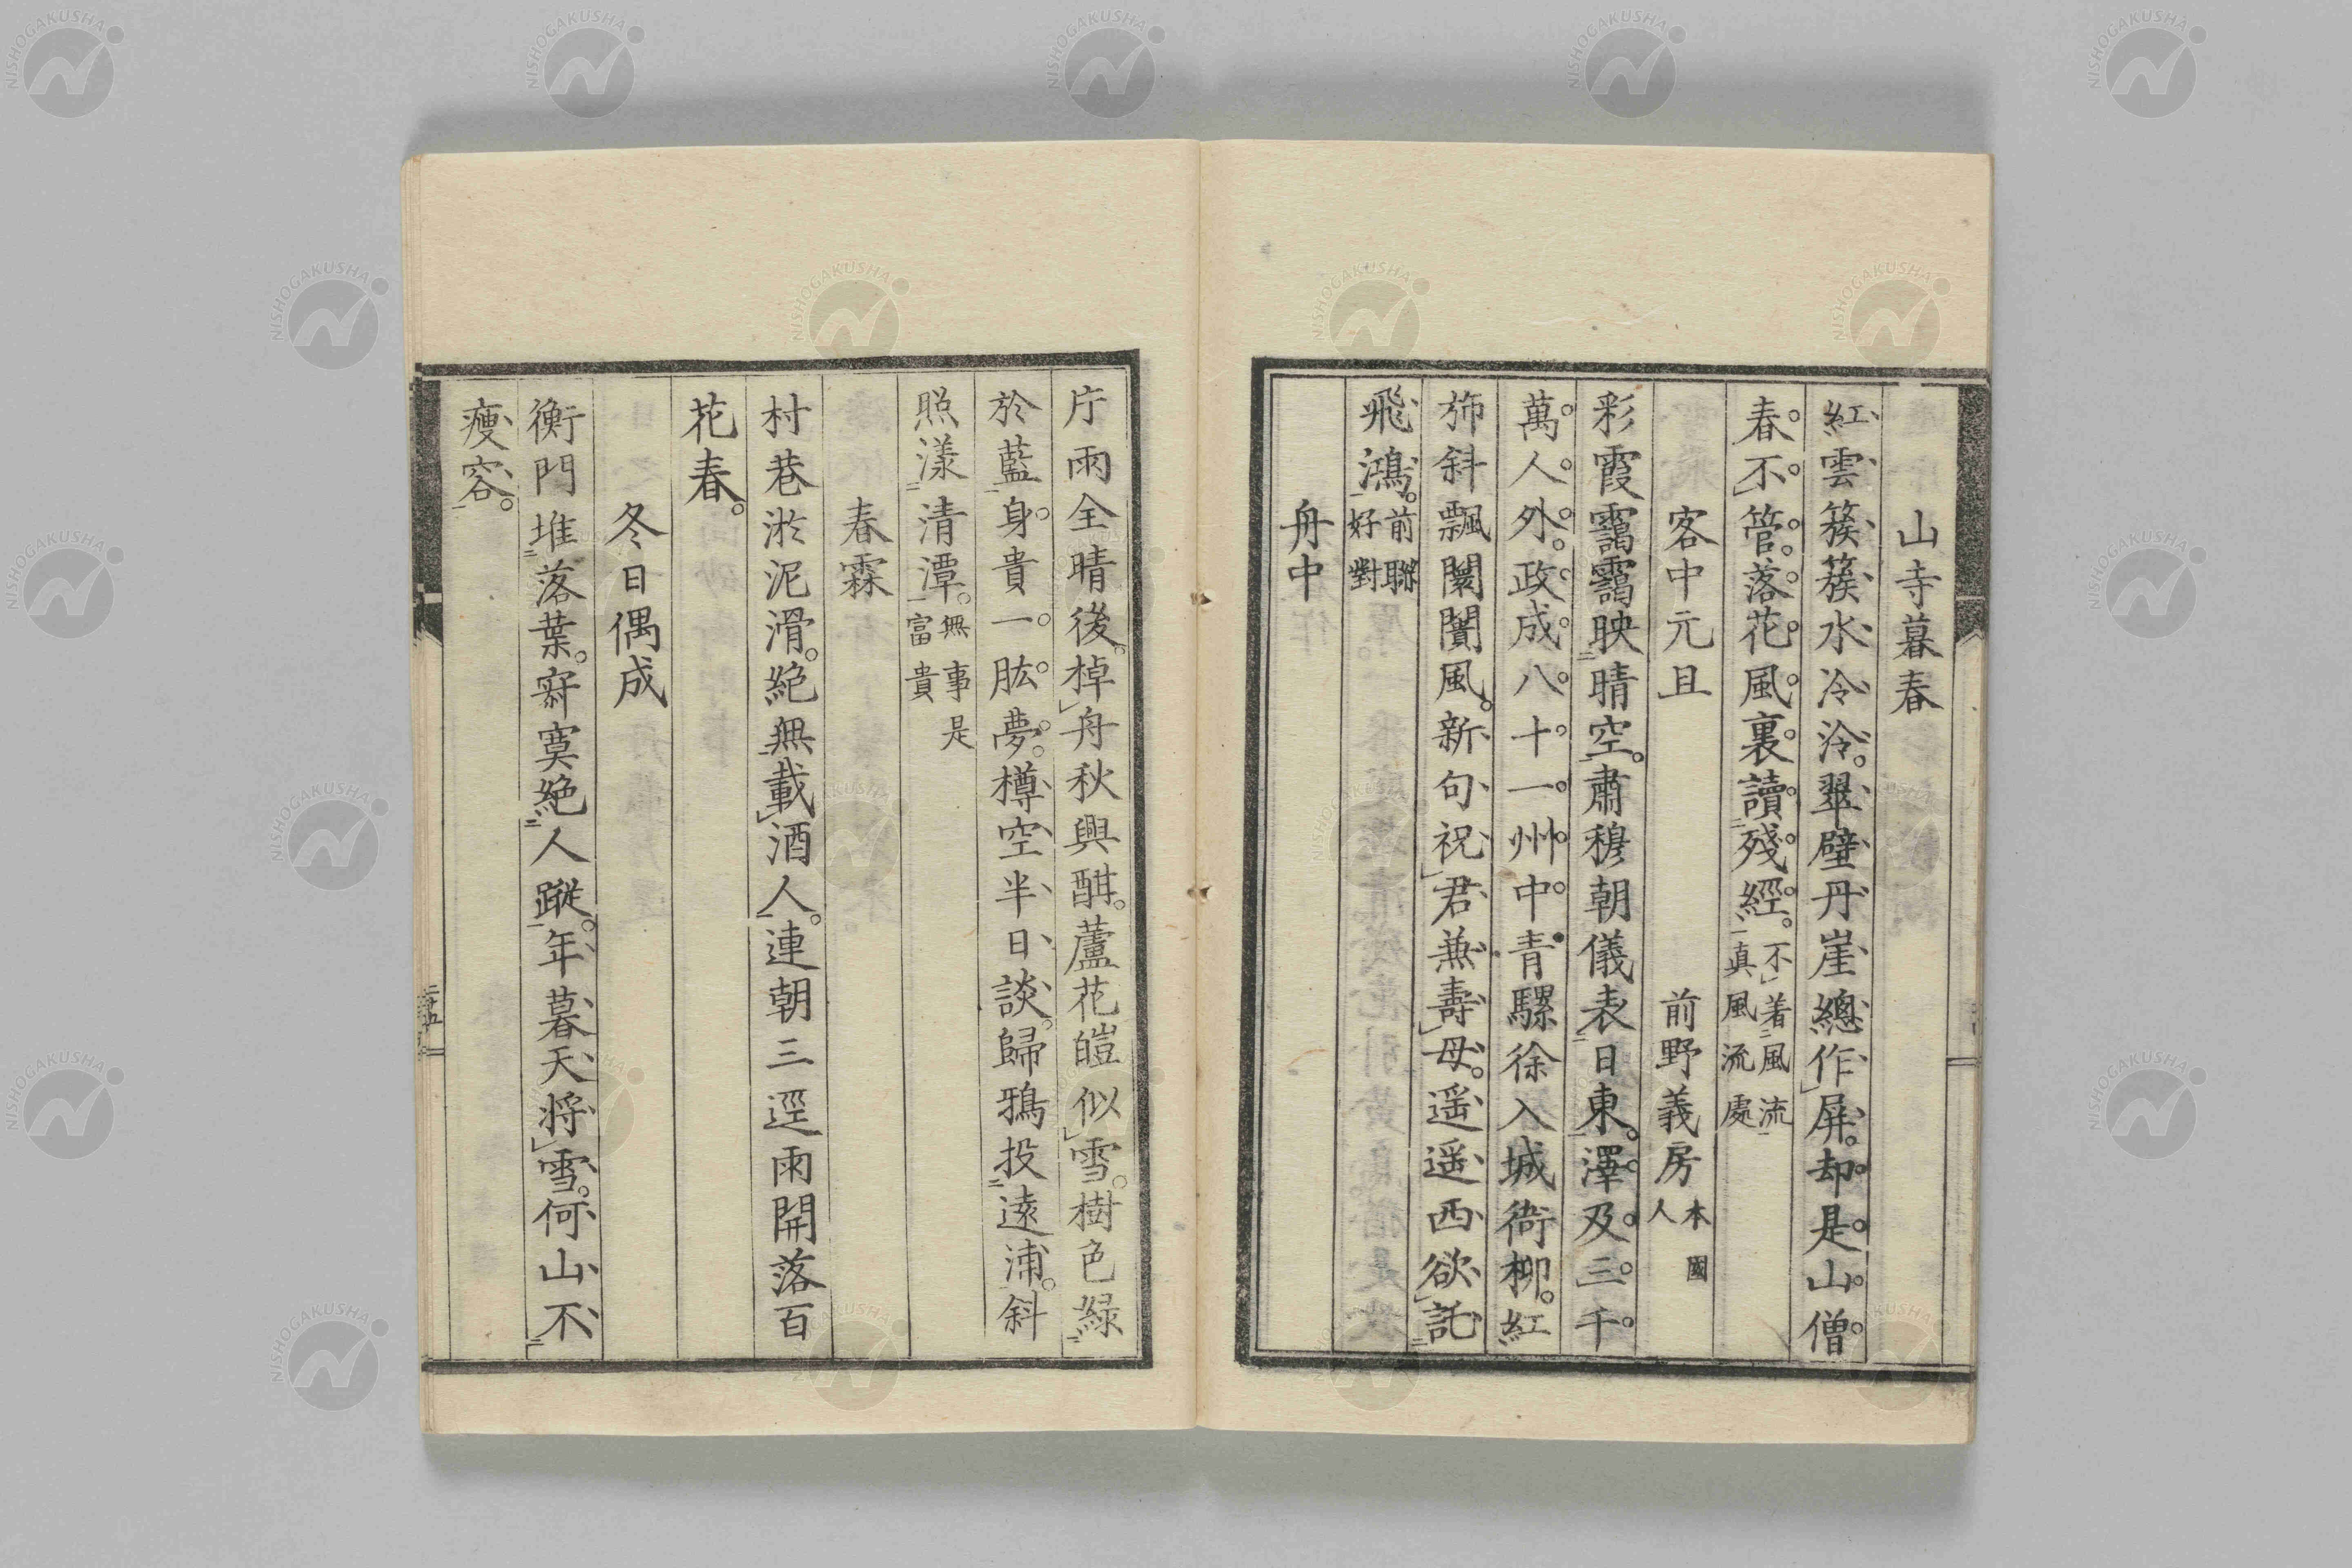 山寺暮春
紅雲簇簇水冷冷。翠壁丹崖總作屏。却是山僧
春不管。落花風裏讀殘經。不着風流真風流處
客中元旦 前野義房 本國人
彩霞靄靄映晴空。肅穆朝儀表日東。澤及三千
萬人外。政成八十一州中。青騾徐入城衙柳。紅
斾斜飄闤闠風。新句祝君兼壽母。遥遥西欲託
飛鴻。前聯好對
舟中
片雨全晴後。棹舟秋興酣。蘆花皚似雪。樹色綠
於藍。身貴一肱夢。樽空半日談。歸鴉投遠浦。斜
照漾清潭。無事是富貴
春霖
村巷淤泥滑。絕無載酒人。連朝三逕雨開落百
花春。
冬日偶成
衡門堆落葉。寂寞絕人蹤。年暮天將雪。何山不
瘦容。
二十五